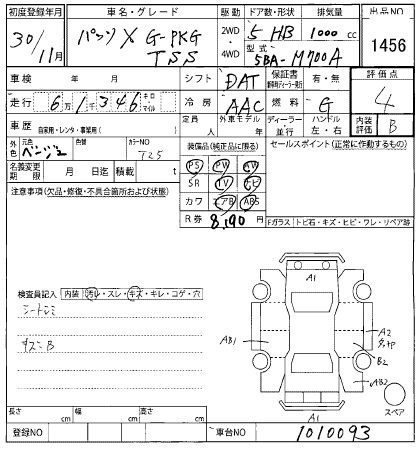 初度登録年月 車名・グレード 駆動 ドア数・形状 排気量 出品NO
30/11月 パッソ X G-PKG TSS 2WD 4WD 5 HB 1000cc 1456
型式 5BA-M700A
車検 年 月 シフト DAT 保証書 有・無 評価点 4
走行 6万1千346 キロ マイル 冷房 AAC 燃料 G
車歴 自家用・レンタ・事業用( ) 定員 人 外車モデル 年 ディーラー 並行 ハンドル 左・右 内装評価 B
外色 元色 ベージュ 色替 カラーNO T25
装備品(純正品に限る) セールスポイント(正常に作動するもの)
名義変更期限 月 日迄 積載 t
PS PW AW
SR TV ナビ
カワ エアB ABS
R券 8,190円
注意事項(欠品・修復・不具合箇所および状態)
Fガラス トビ石・キズ・ヒビ・ワレ・リペア跡
検査員記入 内装 汚レ・スレ・キズ・キレ・コゲ・穴
シートシミ
A1
AB1
A2
B2
AB2
A1
スペア
長さ cm 幅 cm 高さ cm
登録NO 車台NO 1010093